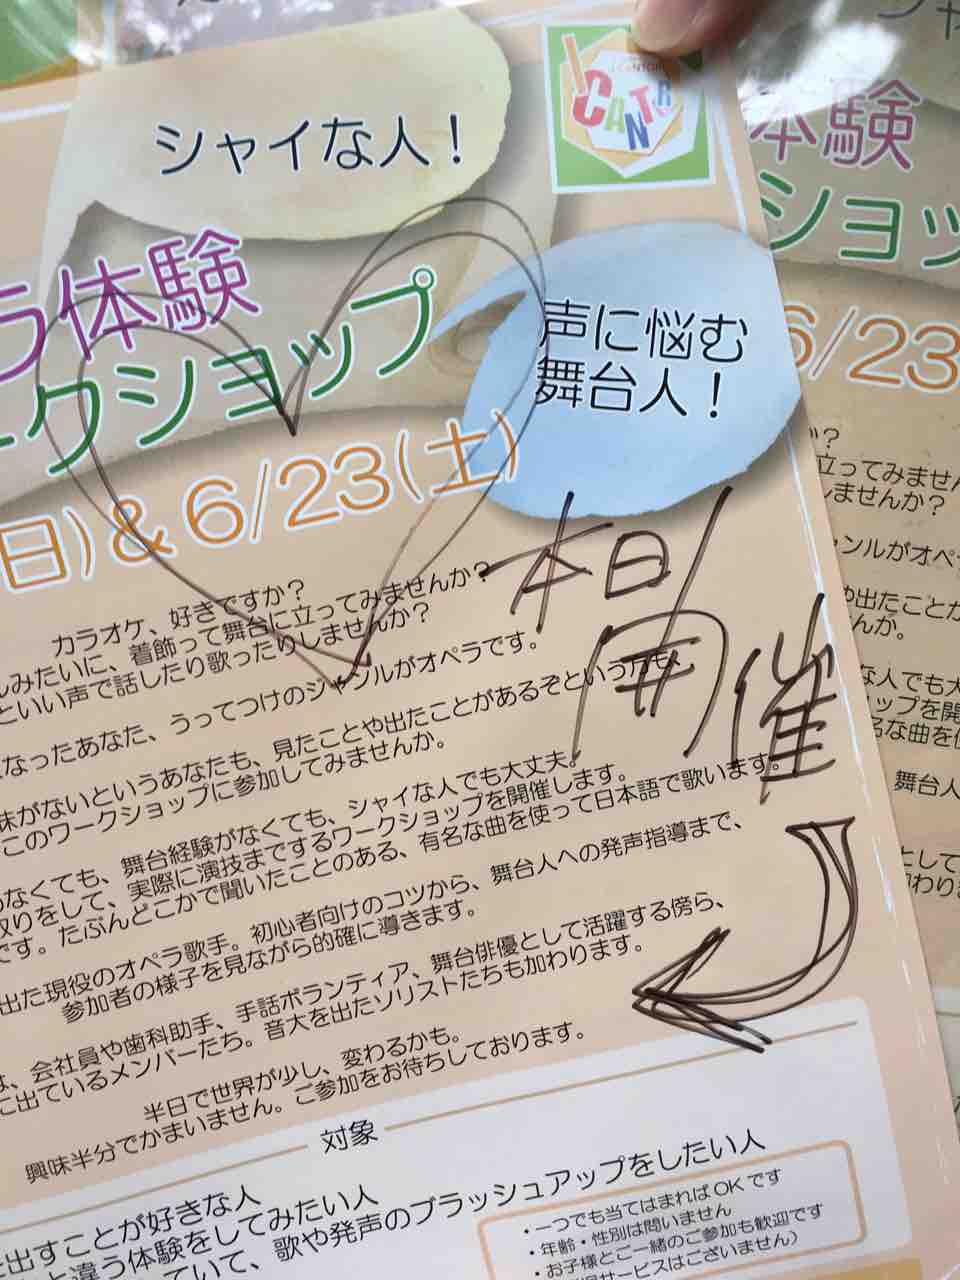 シャイな人！
ICANTOR
ラ体験
ークショップ
声に悩む
舞台人！
(日)&6/23(土)
本日
開催
カラオケ、好きですか？
みたいに、着飾って舞台に立ってみませんか？
といい声で話したり歌ったりしませんか？
なったあなた、うってつけのジャンルがオペラです。
味がないというあなたも、見たことや出たことがあるぞという方も、
このワークショップに参加してみませんか。
なくても、舞台経験がなくても、シャイな人でも大丈夫。
取りをして、実際に演技までするワークショップを開催します。
です。たぶんどこかで聞いたことのある、有名な曲を使って日本語で歌います。
出た現役のオペラ歌手。初心者向けのコツから、舞台人への発声指導まで、
参加者の様子を見ながら的確に導きます。
は、会社員や歯科助手、手話ボランティア、舞台俳優として活躍する傍ら、
に出ているメンバーたち。音大を出たソリストたちも加わります。
半日で世界が少し、変わるかも。
興味半分でかまいません。ご参加をお待ちしております。
対象
出すことが好きな人
と違う体験をしてみたい人
ていて、歌や発声のブラッシュアップをしたい人
・一つでも当てはまればOKです
・年齢・性別は問いません
・お子様とご一緒のご参加も歓迎です
サービスはございません）
体験
ショッ
6/23
？
立ってみません
しませんか？
ャンルがオペラ
や出たことが
んか。
な人でも大
ップを開
名な曲を使
舞台人
として
加わり